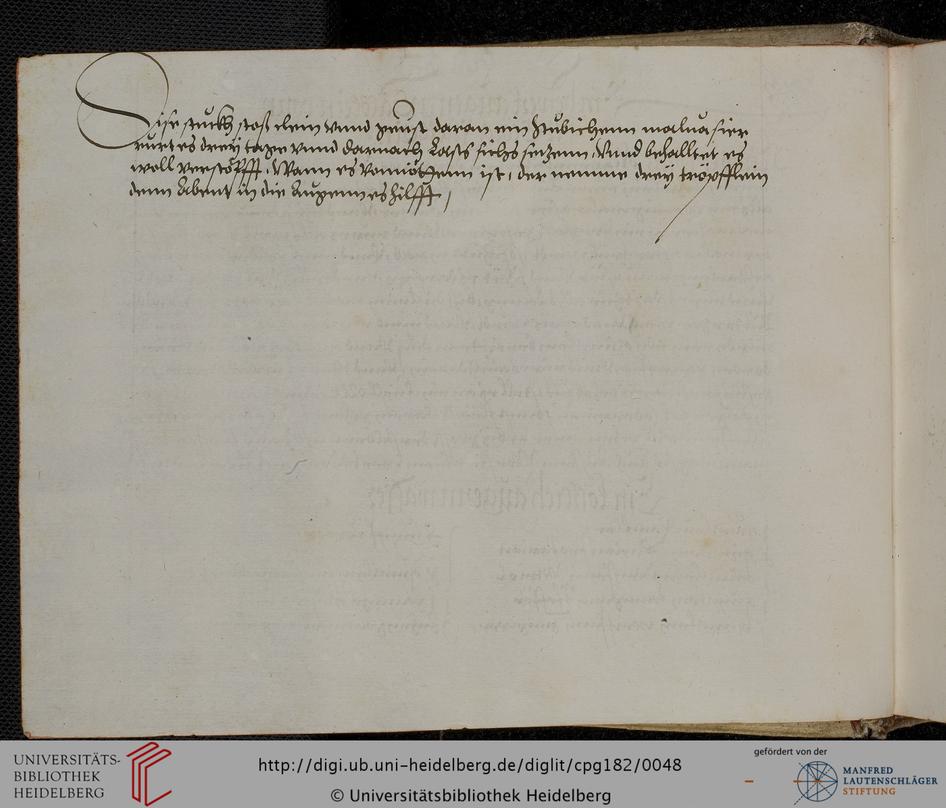 Dise stuckh stoß clein vnnd geust daran ein Stubichenn maluasier
rurt es drey tage vnnd darnach Lasts sichs setzenn, Vnnd behalltet es
woll verstöpfft, Wann es Vonnöthenn ist, der nemme drey tröpfflein
denn Abent in die Augenn es hilfft,
UNIVERSITÄTS-
BIBLIOTHEK
HEIDELBERG
http://digi.ub.uni-heidelberg.de/diglit/cpg182/0048
© Universitätsbibliothek Heidelberg
gefördert von der
MANFRED
LAUTENSCHLÄGER
STIFTUNG